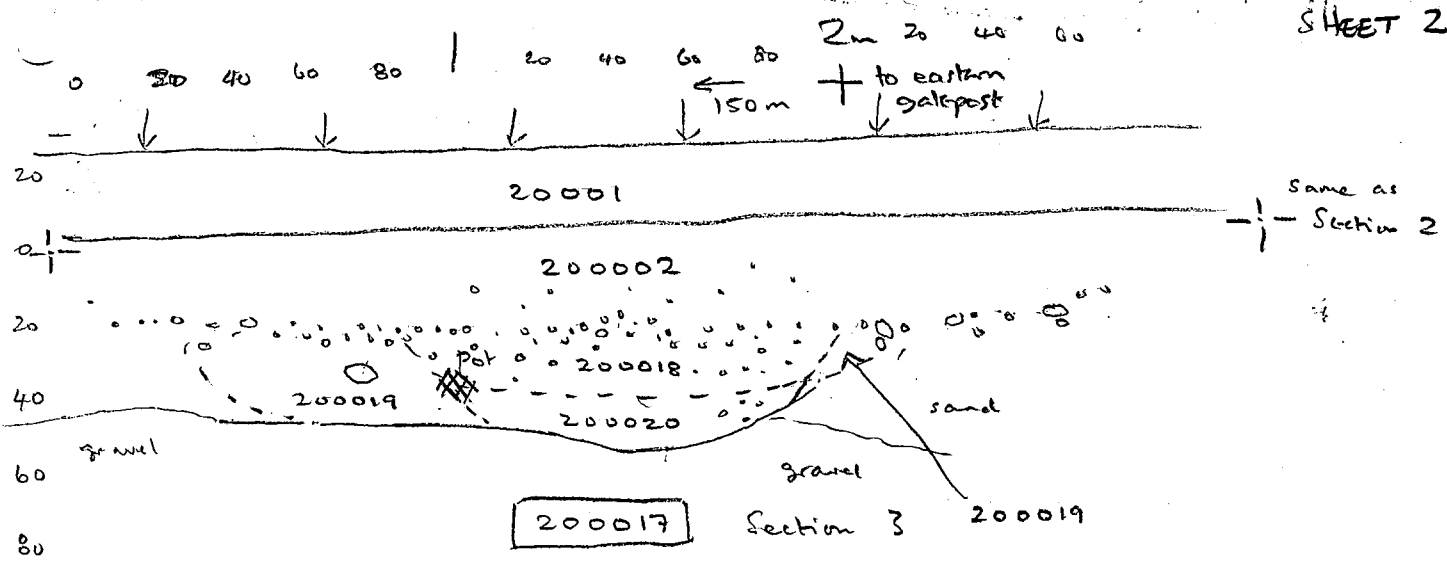 SHEET 2
0 20 40 60 80 1 20 40 60 80 2m 20 40 60
150m to eastern
gatepost
20
20001
same as
Section 2
0
200002
20
pot
200018
40
200019
200020
sand
gravel
60
gravel
200017 Section 3 200019
80